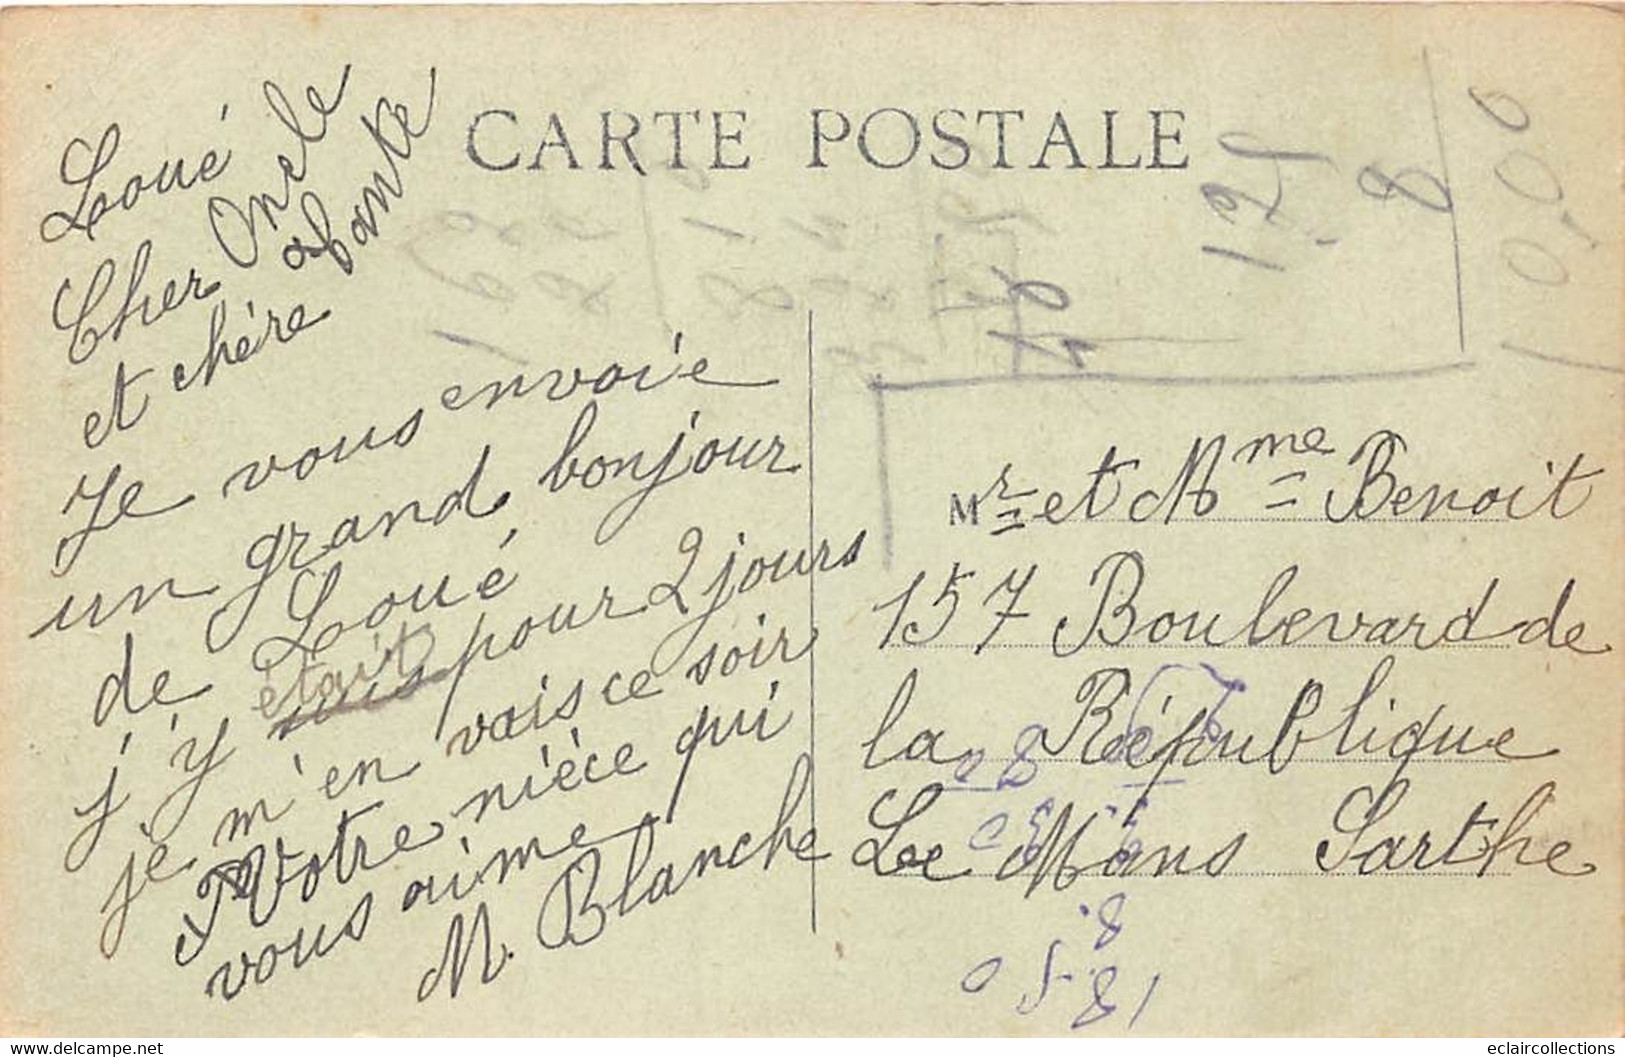 CARTE POSTALE
Loué
Cher Oncle
et chére tante
Je vous envoie
un grand bonjour
de Loué
j'y suis était pour 2 jours
je m'en vais ce soir
Votre nièce qui
vous aime
M. Blanche
Mr et Mme Benoit
157 Boulevard de
la République
Le Mans Sarthe
delcampe.net
eclaircollections